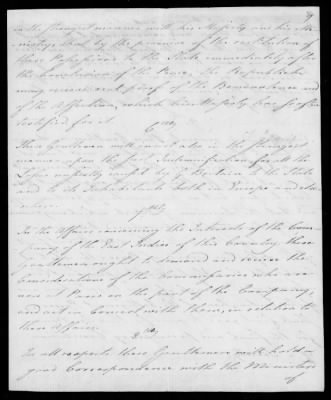 in the strongest manner with his Majesty and his Mi-
nistry, that by the promise of the restitution of
these Possessions to the State immediately after
the conclusion of the Peace, the Republick
may receive a real proof of the Benevolence and
of the Affection, which his Majesty has so often
testified for it.
6thly
These Gentlemen will insist also in the strongest
manner upon the just Indemnification for all the
Losses unjustly caused by G. Britain to the State
and to its Inhabitants both in Europe and else
where.
7thly
In the Affairs concerning the Interests of the Com-
pany of the East Indies of this Country these
Gentlemen ought to demand and receive the
Considerations of the Commissaries who are
now at Paris on the part of the Company,
and act in Concert with them, in relation to
these Affairs.
8thly
In all respects these Gentlemen will hold a
good Correspondence with the Ministers
of